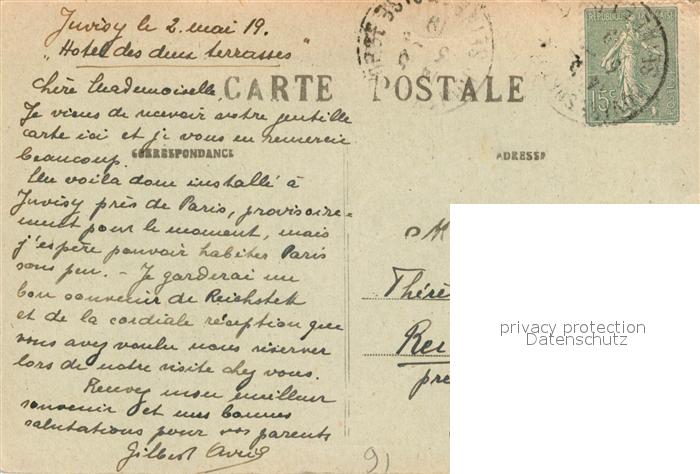 Juvisy le 2. mai 19.
"Hotel des deux terrasses"
CARTE POSTALE
Chère Mademoiselle,
Je viens de recevoir votre gentille
carte ici et je vous en remercie
beaucoup.
CORRESPONDANCE
ADRESSE
Me voila donc installé à
Juvisy près de Paris, provisoire-
ment pour le moment, mais
j'espère pouvoir habiter Paris
sous peu. - Je garderai un
bon souvenir de Reichstett
et de la cordiale réception que
vous avez voulu nous réserver
lors de notre visite chez vous.
Recevez mon meilleur
souvenir et mes bonnes
salutations pour vos parents
Gilbert
91
15c
M
Thérè
Rei
pre
privacy protection
Datenschutz